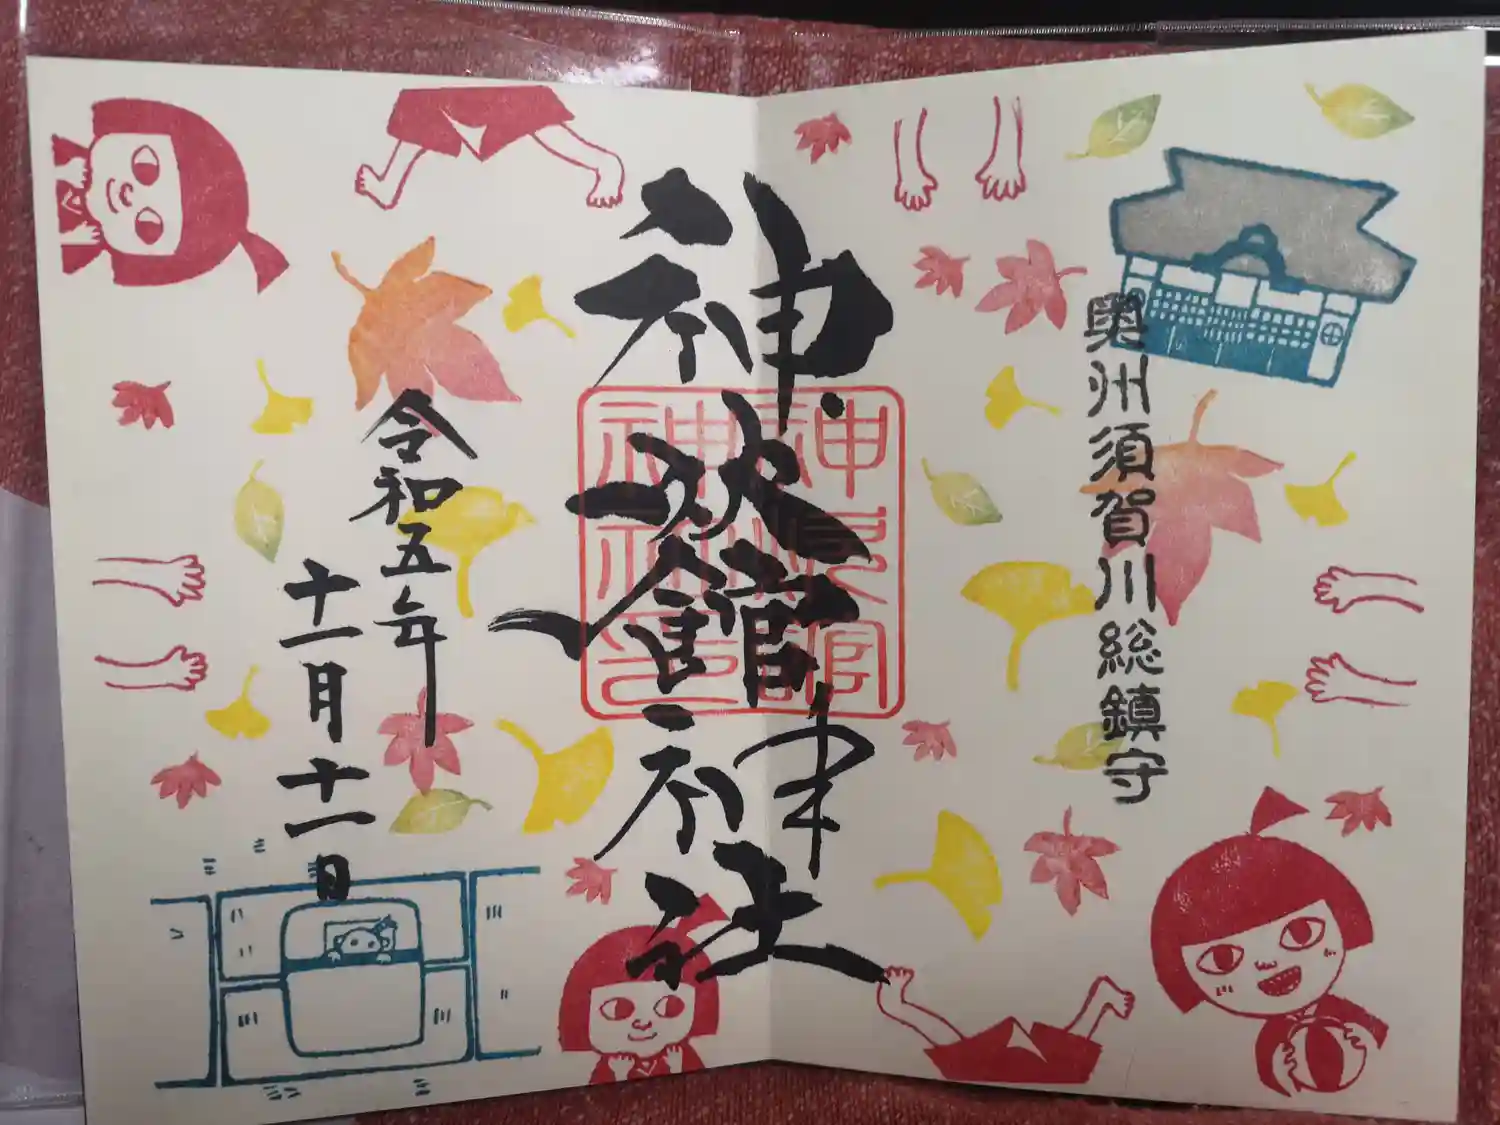 奥州須賀川総鎮守
神炊館神社
神炊館
神社印
令和五年
十一月十一日